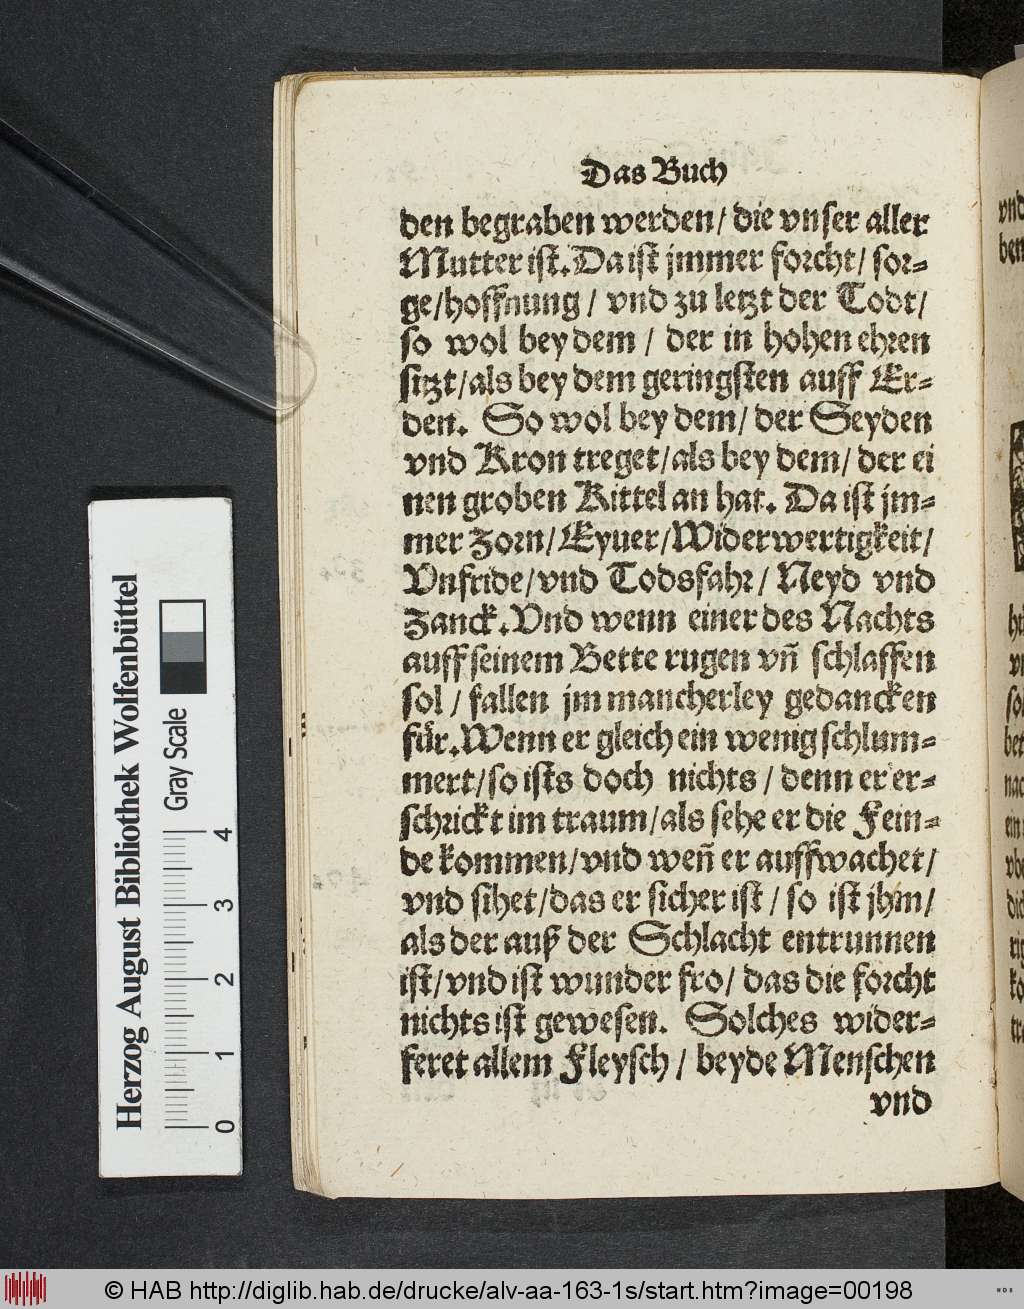 Das Buch
den begraben werden/ die vnser aller
Mutter ist. Da ist jmmer forcht/ sor-
ge/hoffnung / vnd zu letzt der Todt/
so wol bey dem / der in hohen ehren
sitzt/als bey dem geringsten auff Er-
den. So wol bey dem/ der Seyden
vnd Kron treget/als bey dem/ der ei
nen groben Kittel an hat. Da ist jm-
mer Zorn/Eyuer/Widerwertigkeit/
Vnfride/vnd Todsfahr/ Neyd vnd
Zanck. Vnd wenn einer des Nachts
auff seinem Bette rugen vñ schlaffen
sol / fallen jm mancherley gedancken
für. Wenn er gleich ein wenig schlum-
mert/so ists doch nichts / denn er er-
schrickt im traum/als sehe er die Fein-
de kommen/vnd weñ er auffwachet/
vnd sihet/das er sicher ist / so ist jhm/
als der auß der Schlacht entrunnen
ist/vnd ist wunder fro/ das die forcht
nichts ist gewesen. Solches wider-
feret allem Fleysch / beyde Menschen
vnd
Herzog August Bibliothek Wolfenbüttel
Gray Scale
0 1 2 3 4
© HAB http://diglib.hab.de/drucke/alv-aa-163-1s/start.htm?image=00198